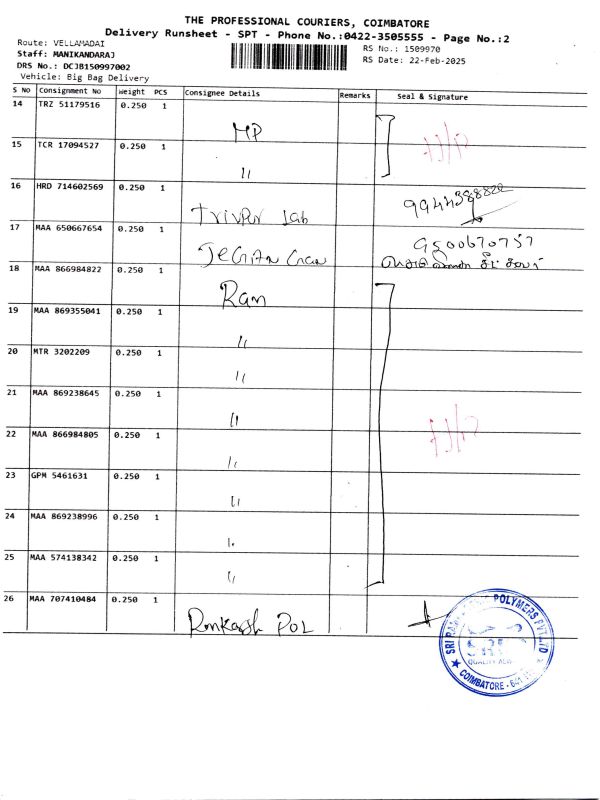 THE PROFESSIONAL COURIERS, COIMBATORE
Delivery Runsheet - SPT - Phone No.:0422-3505555 - Page No.:2
Route: VELLAMADAI
Staff: MANIKANDARAJ
DRS No.: DCJB150997002
Vehicle: Big Bag Delivery
RS No.: 1509970
RS Date: 22-Feb-2025
S No Consignment No Weight PCS Consignee Details Remarks Seal & Signature
14 TRZ 51179516 0.250 1 MP
15 TCR 17094527 0.250 1 "
16 HRD 714602569 0.250 1
17 MAA 650667654 0.250 1 9500670757
18 MAA 866984822 0.250 1 Ram
19 MAA 869355041 0.250 1 "
20 MTR 3202209 0.250 1 "
21 MAA 869238645 0.250 1 "
22 MAA 866984805 0.250 1 "
23 GPM 5461631 0.250 1 "
24 MAA 869238996 0.250 1 "
25 MAA 574138342 0.250 1 "
26 MAA 707410484 0.250 1
POLYMERS PVT LTD
COIMBATORE - 641